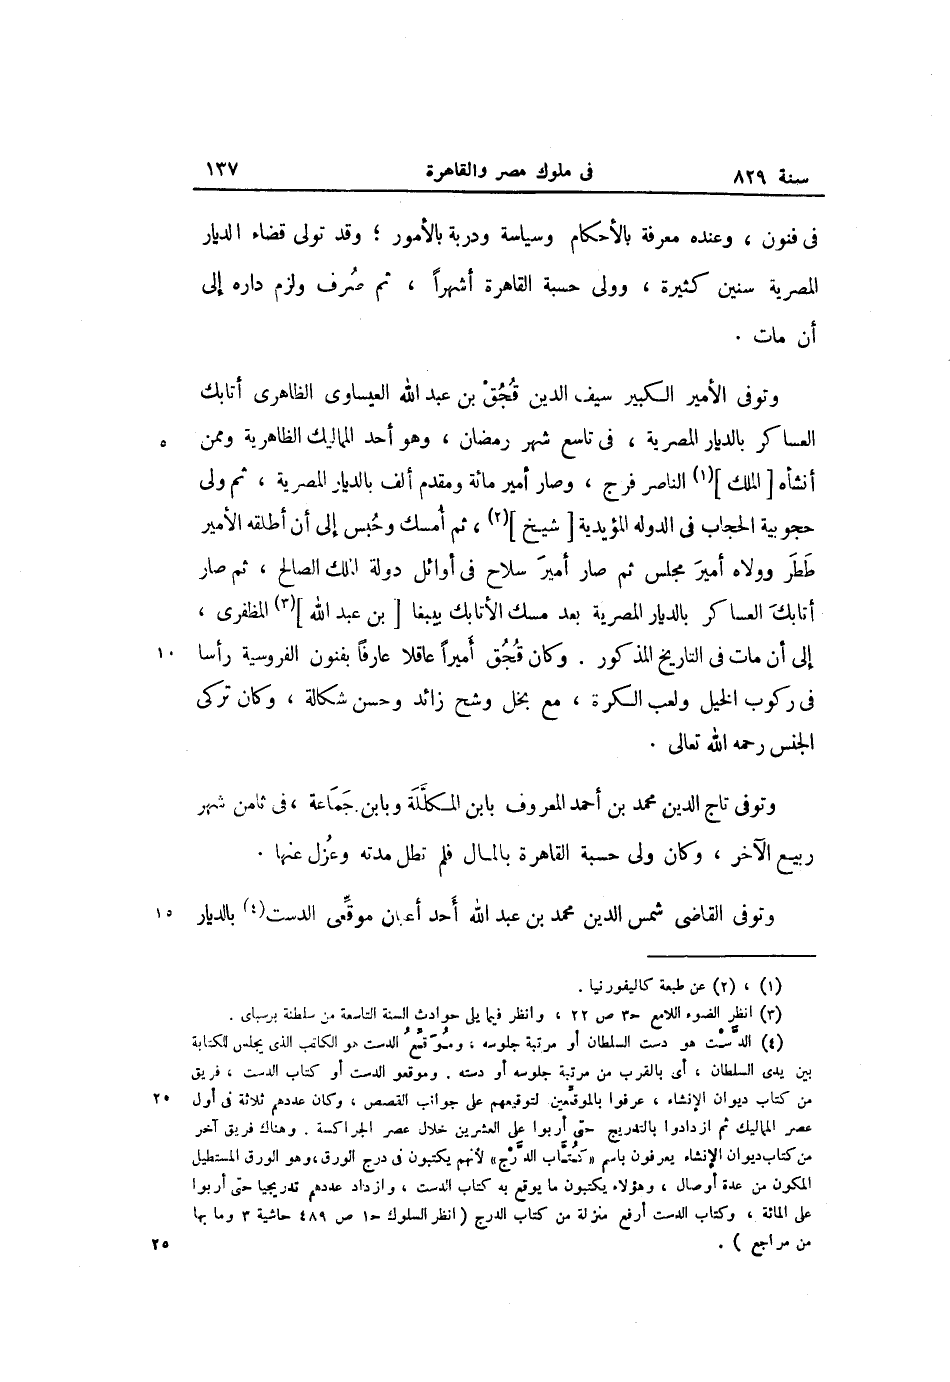 سنة ٨٢٩ فى ملوك مصر والقاهرة ١٣٧
فى فنون ، وعنده معرفة بالأحكام وسياسة ودربة بالأمور ؛ وقد تولى قضاء الديار
المصرية سنين كثيرة ، وولى حسبة القاهرة أشهراً ، ثم صُرف ولزم داره إلى
أن مات .
وتوفى الأمير الكبير سيف الدين قُجُقْ بن عبد الله العيساوى الظاهرى أتابك
العساكر بالديار المصرية ، فى تاسع شهر رمضان ، وهو أحد المماليك الظاهرية وممن ٥
أنشأه [ الملك ](١) الناصر فرج ، وصار أمير مائة ومقدم ألف بالديار المصرية ، ثم ولى
حجوبية الحجاب فى الدوله المؤيدية [ شيخ ](٢) ، ثم أُمسك وحُبس إلى أن أطلقه الأمير
طَطَر وولاه أميرَ مجلس ثم صار أميرَ سلاح فى أوائل دولة الملك الصالح ، ثم صار
أتابكَ العساكر بالديار المصرية بعد مسك الأتابك بيبغا [ بن عبد الله ](٣) المظفرى ،
إلى أن مات فى التاريخ المذكور . وكان قُجُق أميراً عاقلا عارفاً بفنون الفروسية رأسا ١٠
فى ركوب الخيل ولعب الكرة ، مع بخل وشح زائد وحسن شكالة ، وكان تركى
الجنس رحمه الله تعالى .
وتوفى تاج الدين محمد بن أحمد المعروف بابن المكلَّلَة وبابن جَمَاعة ، فى ثامن شهر
ربيع الآخر ، وكان ولى حسبة القاهرة بالمال فلم تطل مدته وعُزل عنها .
وتوفى القاضى شمس الدين محمد بن عبد الله أَحد أعيان موقِّعى الدست(٤) بالديار ١٥
(١) ، (٢) عن طبعة كاليفورنيا .
(٣) انظر الضوء اللامع ح٣ ص ٢٢ ، وانظر فيما يلى حوادث السنة التاسعة من سلطنة برسباى .
(٤) الدَّسْت هو دست السلطان أو مرتبة جلوسه ؛ ومُوَقِّعُ الدست هو الكاتب الذى يجلس للكتابة
بين يدى السلطان ، أى بالقرب من مرتبة جلوسه أو دسته . وموقعو الدست أو كتاب الدست ، فريق
من كتاب ديوان الإنشاء ، عرفوا بالموقِّعين لتوقيعهم على جوانب القصص ، وكان عددهم ثلاثة فى أول ٢٠
عصر المماليك ثم ازدادوا بالتدريج حتى أربوا على العشرين خلال عصر الجراكسة . وهناك فريق آخر
من كتاب ديوان الإنشاء يعرفون باسم «كُتَّاب الدَّرْج» لأنهم يكتبون فى درج الورق ، وهو الورق المستطيل
المكون من عدة أوصال ، وهؤلاء يكتبون ما يوقع به كتاب الدست ، وازداد عددهم تدريجيا حتى أربوا
على المائة ، وكتاب الدست أرفع منزلة من كتاب الدرج ( انظر السلوك ح١ ص ٤٨٩ حاشية ٣ وما بها
من مراجع ) . ٢٥